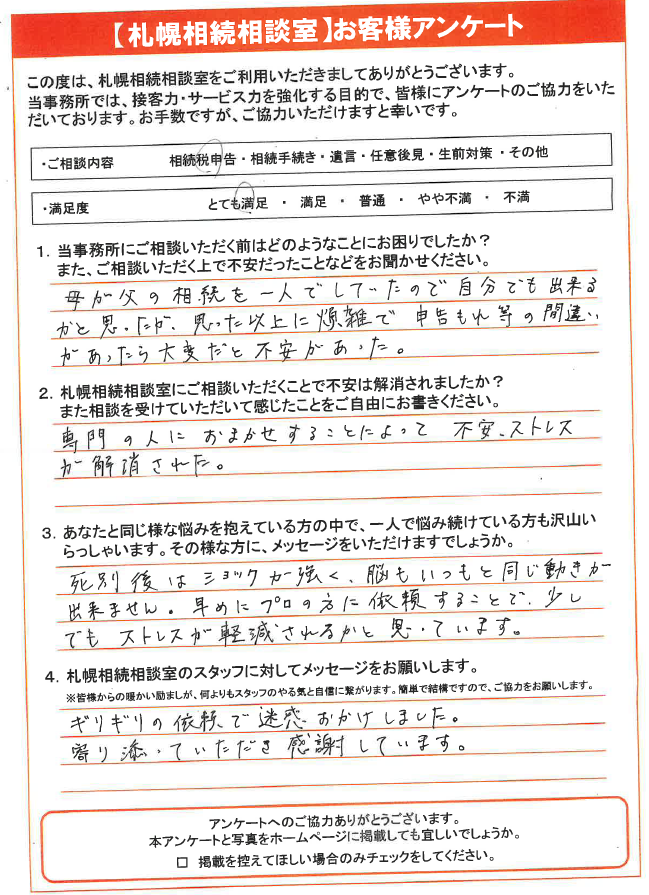 【札幌相続相談室】お客様アンケート
この度は、札幌相続相談室をご利用いただきましてありがとうございます。
当事務所では、接客力・サービス力を強化する目的で、皆様にアンケートのご協力をいた
だいております。お手数ですが、ご協力いただけますと幸いです。
・ご相談内容 相続税申告・相続手続き・遺言・任意後見・生前対策・その他
・満足度 とても満足 ・ 満足 ・ 普通 ・ やや不満 ・ 不満
1．当事務所にご相談いただく前はどのようなことにお困りでしたか？
また、ご相談いただく上で不安だったことなどをお聞かせください。
母が父の相続を一人でしていたので自分でも出来る
かと思ったが、思った以上に煩雑で申告もれ等の間違い
があったら大変だと不安があった。
2．札幌相続相談室にご相談いただくことで不安は解消されましたか？
また相談を受けていただいて感じたことをご自由にお書きください。
専門の人におまかせすることによって不安、ストレス
が解消された。
3．あなたと同じ様な悩みを抱えている方の中で、一人で悩み続けている方も沢山い
らっしゃいます。その様な方に、メッセージをいただけますでしょうか。
死別後はショックが強く、脳もいつもと同じ動きが
出来ません。早めにプロの方に依頼することで、少し
でもストレスが軽減されるかと思っています。
4．札幌相続相談室のスタッフに対してメッセージをお願いします。
※皆様からの暖かい励ましが、何よりもスタッフのやる気と自信に繋がります。簡単で結構ですので、ご協力をお願いします。
ギリギリの依頼で迷惑おかけしました。
寄り添っていただき感謝しています。
アンケートへのご協力ありがとうございます。
本アンケートと写真をホームページに掲載しても宜しいでしょうか。
□ 掲載を控えてほしい場合のみチェックをしてください。